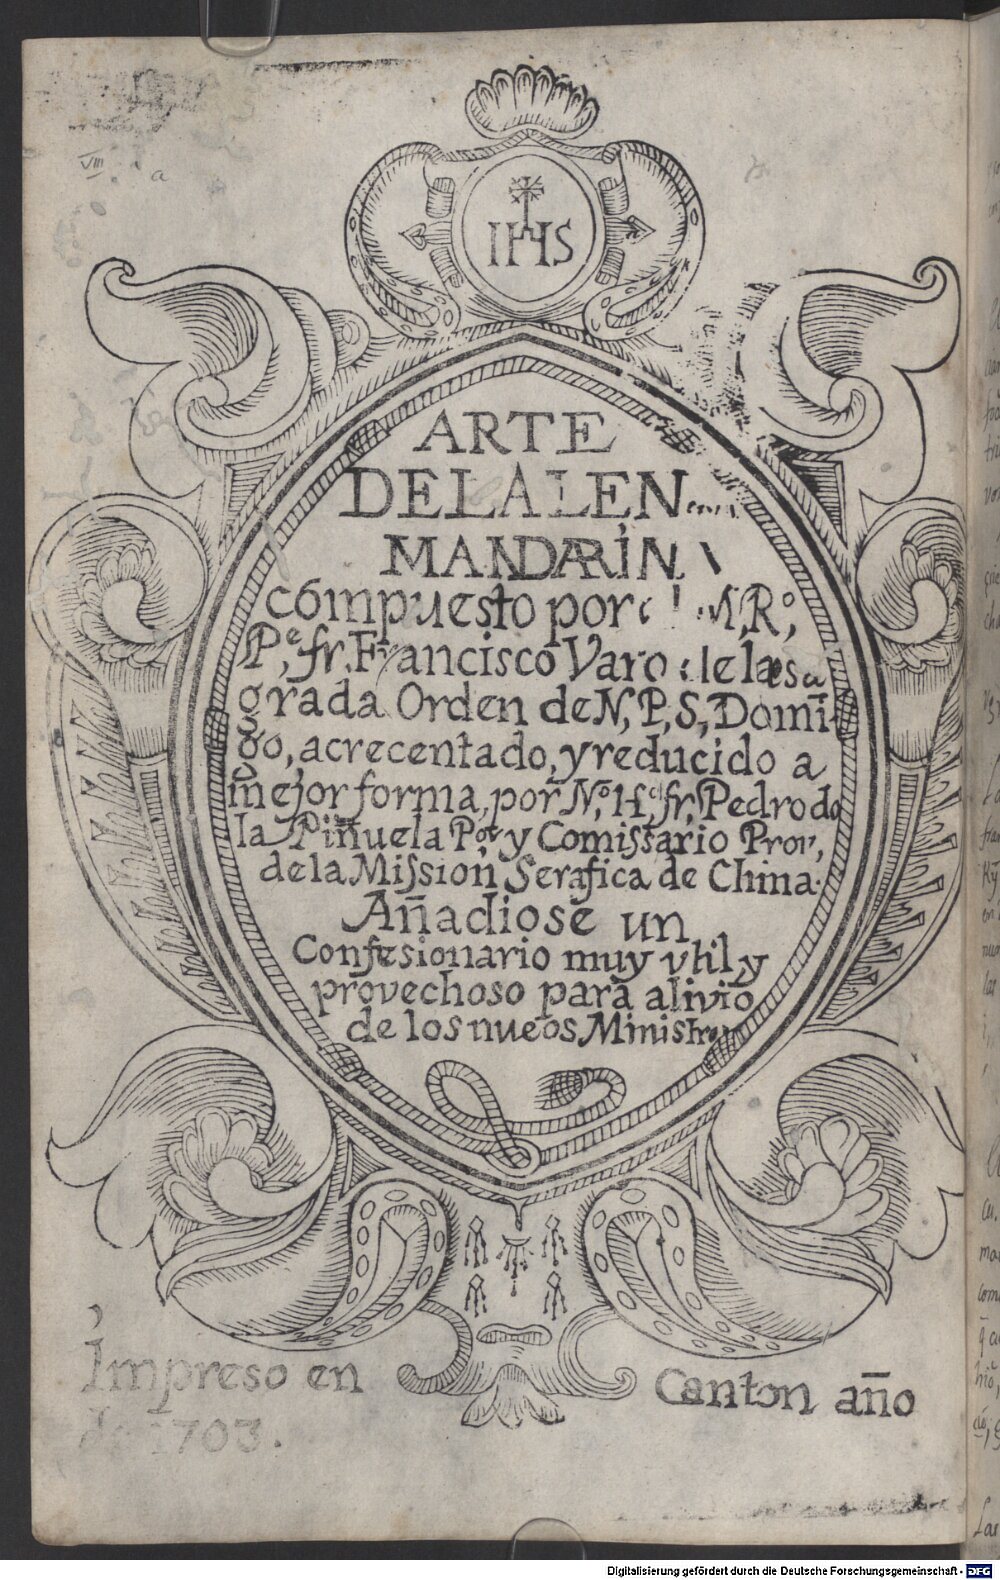 VIII
a
IHS
ARTE
DE LA LEN
MANDARIN
compuesto por M, Rº,
Pe, fr, Francisco Varo de la sa
grada Orden de N, P, S, Domī
go, acrecentado, y reducido a
mejor forma, por Nº, H fr, Pedro de
la Piñuela Por, y Comissario Prov,
de la Mission Serafica de China.
Añadiose un
Confesionario muy vtil, y
provechoso para alivio
de los nueos Ministros
Impreso en Canton año
de 1703.
Digitalisierung gefördert durch die Deutsche Forschungsgemeinschaft - DFG